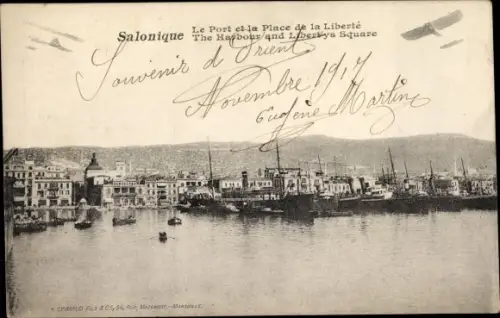 Salonique
Le Port et la Place de la Liberté
The Harbour and Libert'ya Square
Souvenir d'Orient
Novembre 1917
Eugène Martin